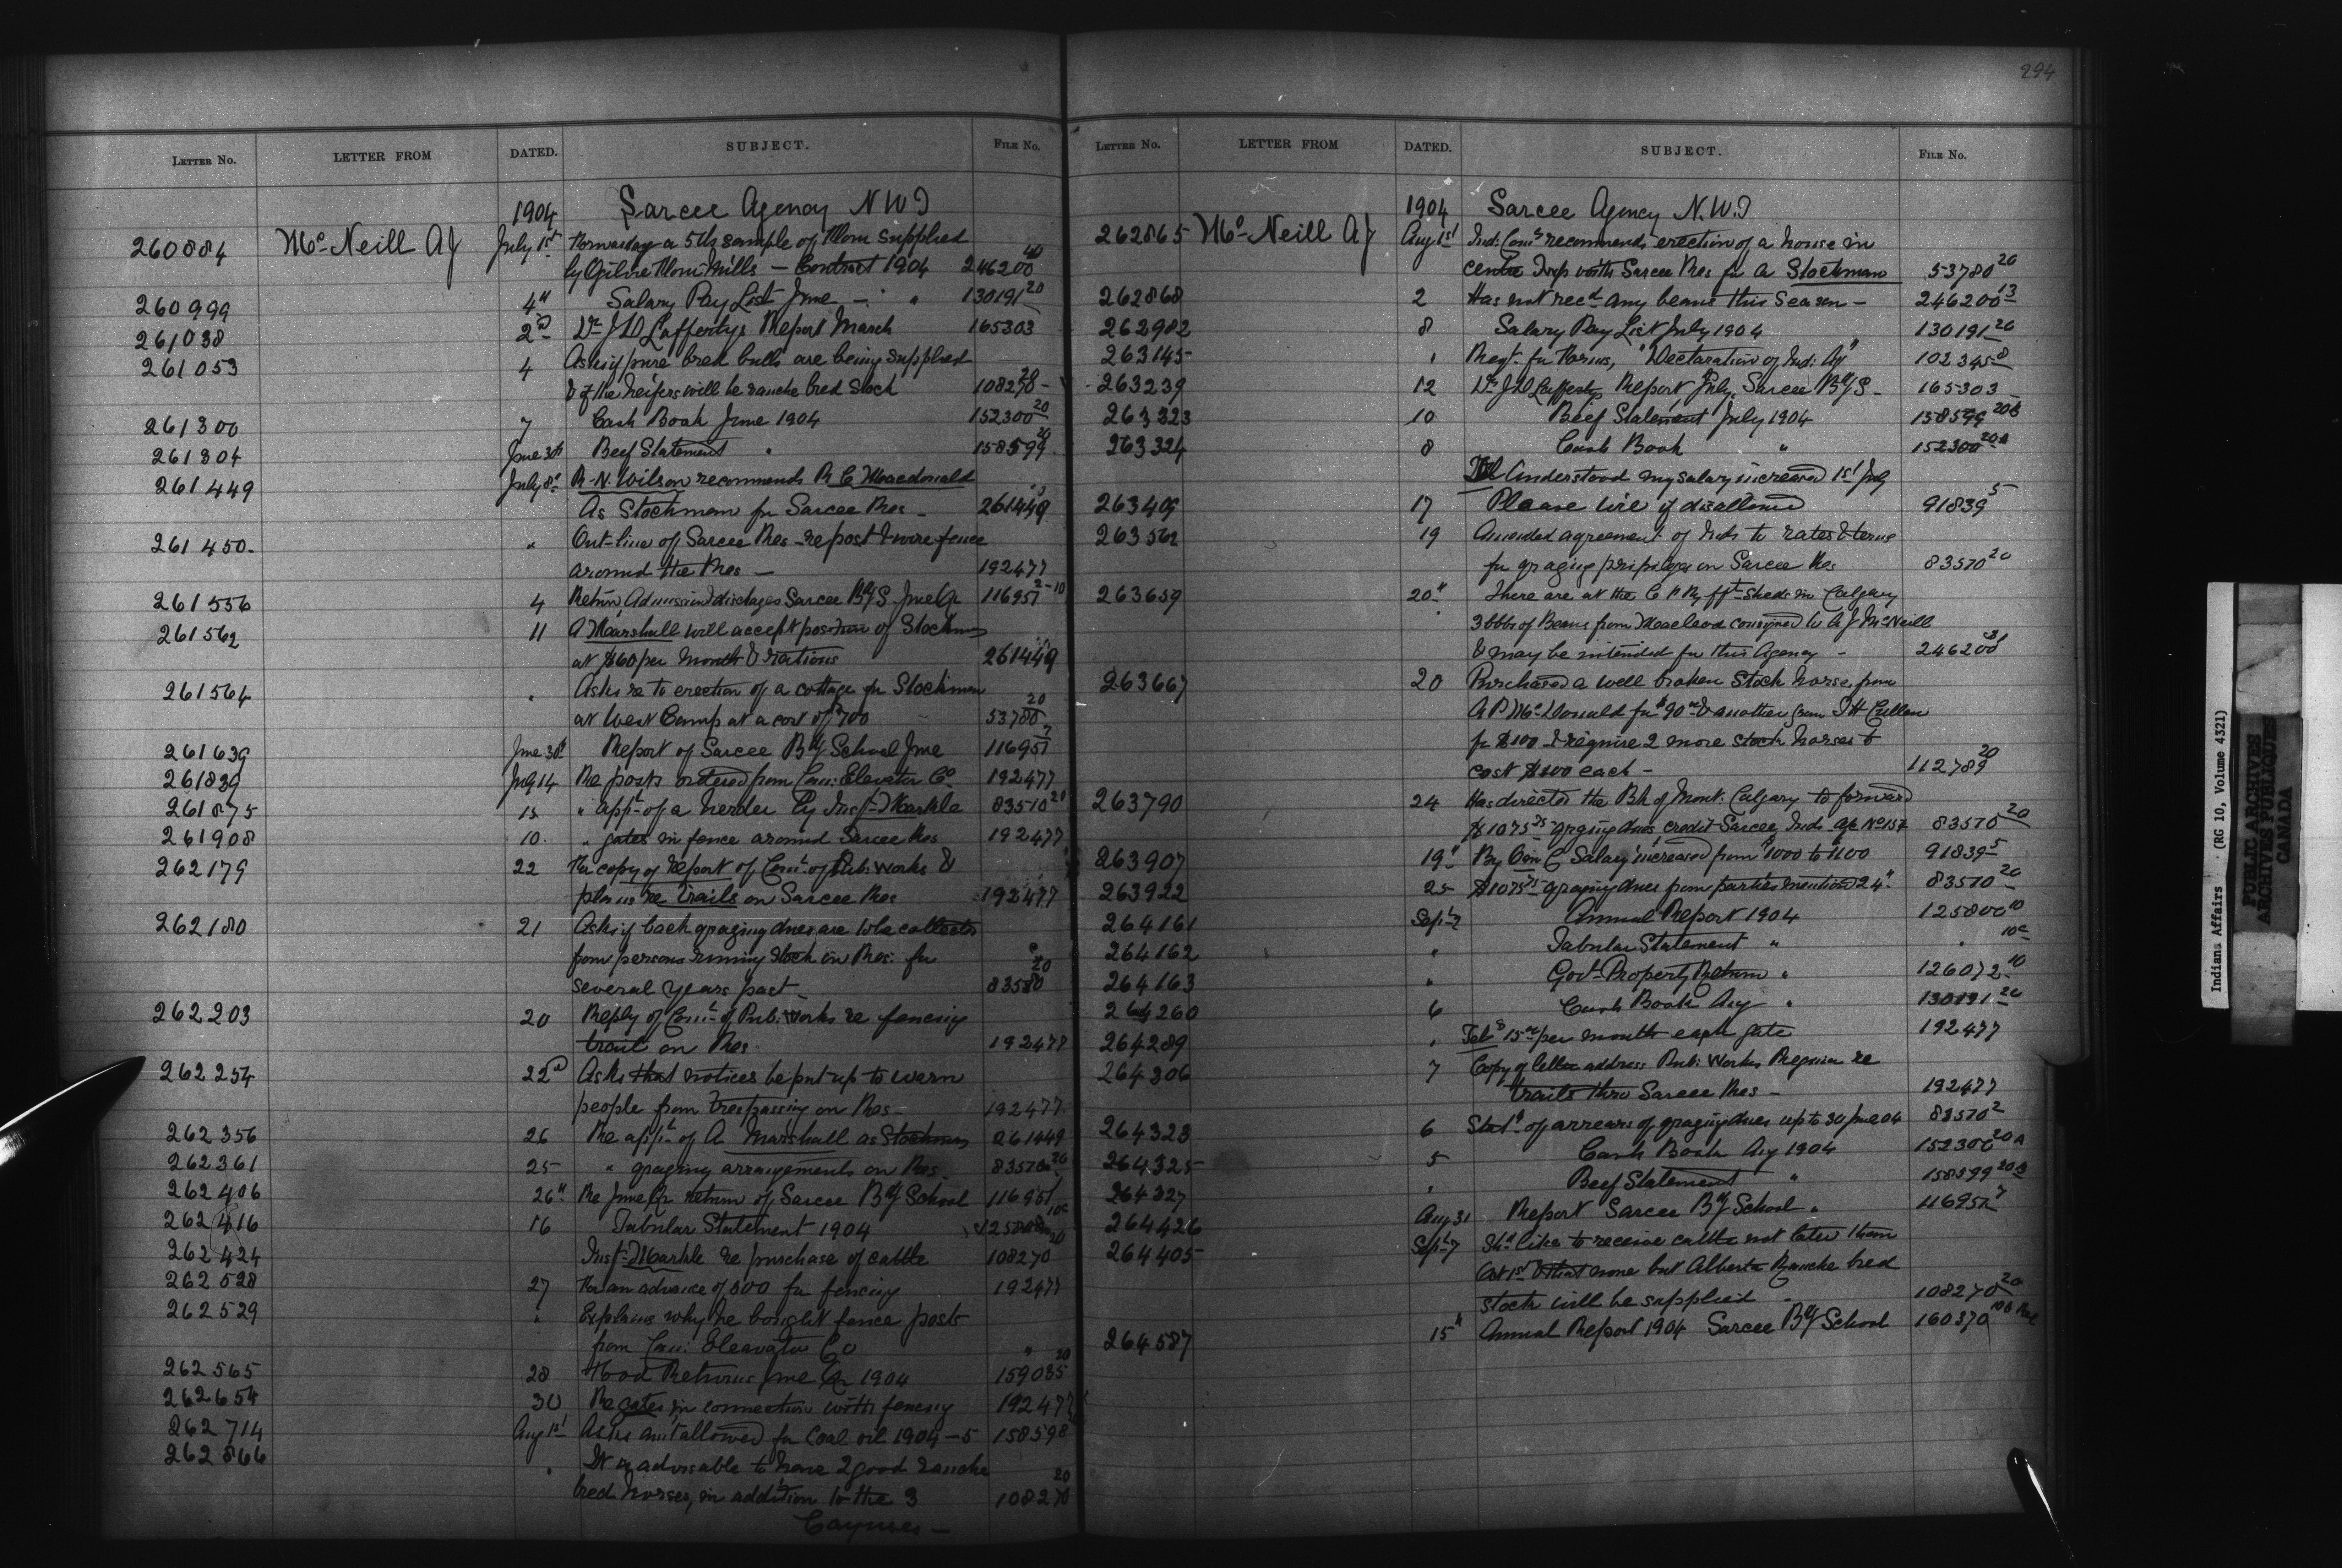 294
LETTER NO. LETTER FROM DATED. SUBJECT. FILE NO.
1904 Sarcee Agency N W T
260884 McNeill AJ July 1st Forwardg a 5 lb sample of Flour supplied
by Gilvie Flour Mills — Contract 1904 246200 40
260999 4" Salary Pay List June — " 130191 20
261038 2d Dr J D Laffertys Report March 165303
261053 4 Asks if pure bred bulls are being supplied
& if the heifers will be ranche bred stock 108270 20
261300 7 Cash Book June 1904 152300 20
261304 June 30th Beef Statement " 158599 20
261449 July 8" R. N. Wilson recommends R C Macdonald
As Stockman for Sarcee Res — 261449
261450 " Out-line of Sarcee Res - re post & wire fence
around the Res — 192477
261556 4 Return Admission & discharges Sarcee Bdg S. June Qr 116951 2-10
261562 11 A Marshall will accept position of Stockman
at $60 per month & rations 261449
261564 " Asks re to erection of a cottage for Stockman
at West Camp at a cost of $700 53780 20
261639 June 30th Report of Sarcee Bdg School June 116951 7
261839 July 14 Re posts ordered from Can: Elevator Co 192477
261875 15 " appt of a herder by Insp Markle 83570 20
261908 10 " gates in fence around Sarcee Res 192477
262179 22 For copy of report of Comr of Pub: Works &
plan re trails on Sarcee Res 192477
262180 21 Asks if back grazing dues are to be collected
from persons running stock on Res: for
several years past — 83580 20
262203 20 Reply of Comr of Pub: Works re fencing
trail on Res 192477
262254 22d Asks that notices be put up to warn
people from trespassing on Res — 192477
262356 26 Re appt of A Marshall as Stockman 261449
262361 25 " grazing arrangements on Res 83570 20
262406 26" Re June Qr return of Sarcee Bdg School 116951
262416 16 Tabular Statement 1904 125800 10c
262424 Insp Markle re purchase of cattle 108270 20
262528 27 For an advance of 500 for fencing 192477
262529 " Explains why he bought fence posts
from Can: Eleavator Co "
262565 28 Food Returns June Qr 1904 159035 20
262654 30 Re gates in connection with fencing 192477
262714 Aug 1st Asks amt allowed for Coal oil 1904-5 158598
262866 " It is advisable to have 2 good ranche
bred horses, in addition to the 3 108270 20
Cayuses —
LETTER NO. LETTER FROM DATED. SUBJECT. FILE NO.
1904 Sarcee Agency N.W.T
262865 McNeill AJ Aug 1st Ind: Comr recommends erection of a house in
centre Twp with Sarcee Res for a Stockman 53780 20
262868 2 Has not recd any beans this season — 246200 13
262982 8 Salary Pay List July 1904 130191 20
263145 " Reqt for Forms, "Declaration of Ind: Ag" 102345 8
263239 12 Dr J D Laffertys Report July, Sarcee Bdg S — 165303
263323 10 Beef Statement July 1904 158599 20B
263324 8 Cash Book " 152300 20A
Tel Understood my salary increased 1st July
263409 17 Please wire if disallowed 91839 5
263562 19 Amended agreement of Inds to rates & terms
for grazing privileges on Sarcee Res 83570 20
263659 20" There are at the C P Ry frt sheds in Calgary
3 bbls of Beans from Macleod consigned to A J McNeill
& may be intended for this Agency — 246200 31
263667 20 Purchased a well broken stock horse, from
A P McDonald for $90 & another from J H Cullen
for $100. I require 2 more stock horses to
cost $100 each — 112789 20
263790 24 Has directed the Bk of Mont: Calgary to forward
$1075.75 grazing dues, credit Sarcee Inds a/c No 157 83570 20
263907 19" By O in C Salary increased from $1000 to $1100 91839 5
263922 25 $1075.75 grazing dues from parties mentioned 24" 83570 20
264161 Sept 2 Annual Report 1904 125800 10
264162 " Tabular Statement " " 10c
264163 " Govt Property Return " 126072 10
264260 6 Cash Book Aug " 130191 20
264289 " Tel $15.00 per month each gate 192477
264306 7 Copy of letter address Pub: Works Regina re
trails thro Sarcee Res — 192477
264323 6 Statt of arrears of grazing dues up to 30 June 04 83570 2
264325 5 Cash Book Aug 1904 152300 20A
264327 " Beef Statement " 158599 20B
264426 Aug 31 Report Sarcee Bdg School " 116951 7
264405 Sept 7 Shd like to receive cattle not later than
Oct 1st & that none but Alberta Ranche bred
stock will be supplied 108270 20
264587 15" Annual Report 1904 Sarcee Bdg School 160370
Indians Affairs (RG 10, Volume 4321)
PUBLIC ARCHIVES
ARCHIVES PUBLIQUES
CANADA